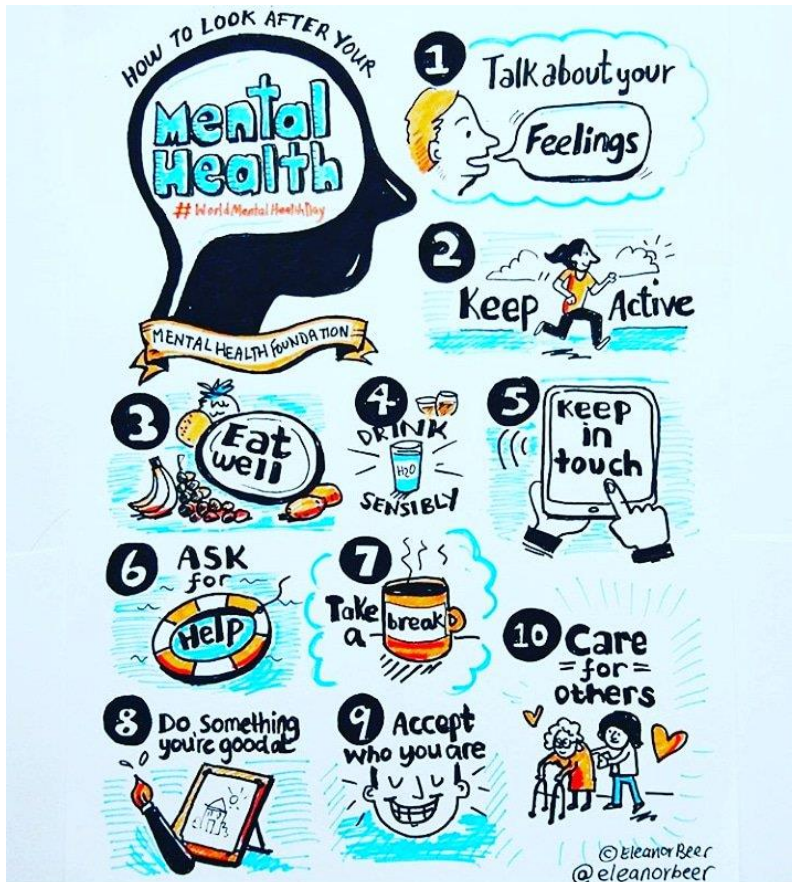 HOW TO LOOK AFTER YOUR
Mental
Health
#WorldMentalHealthDay
MENTAL HEALTH FOUNDATION
1
Talk about your
Feelings
2
Keep Active
3
Eat
well
4
DRINK
H2O
SENSIBLY
5
Keep
in
touch
6
ASK
for
Help
7
Take
a break
8
Do Something
you're good at
9
Accept
who you are
10
Care
=for=
others
© Eleanor Beer
@eleanorbeer